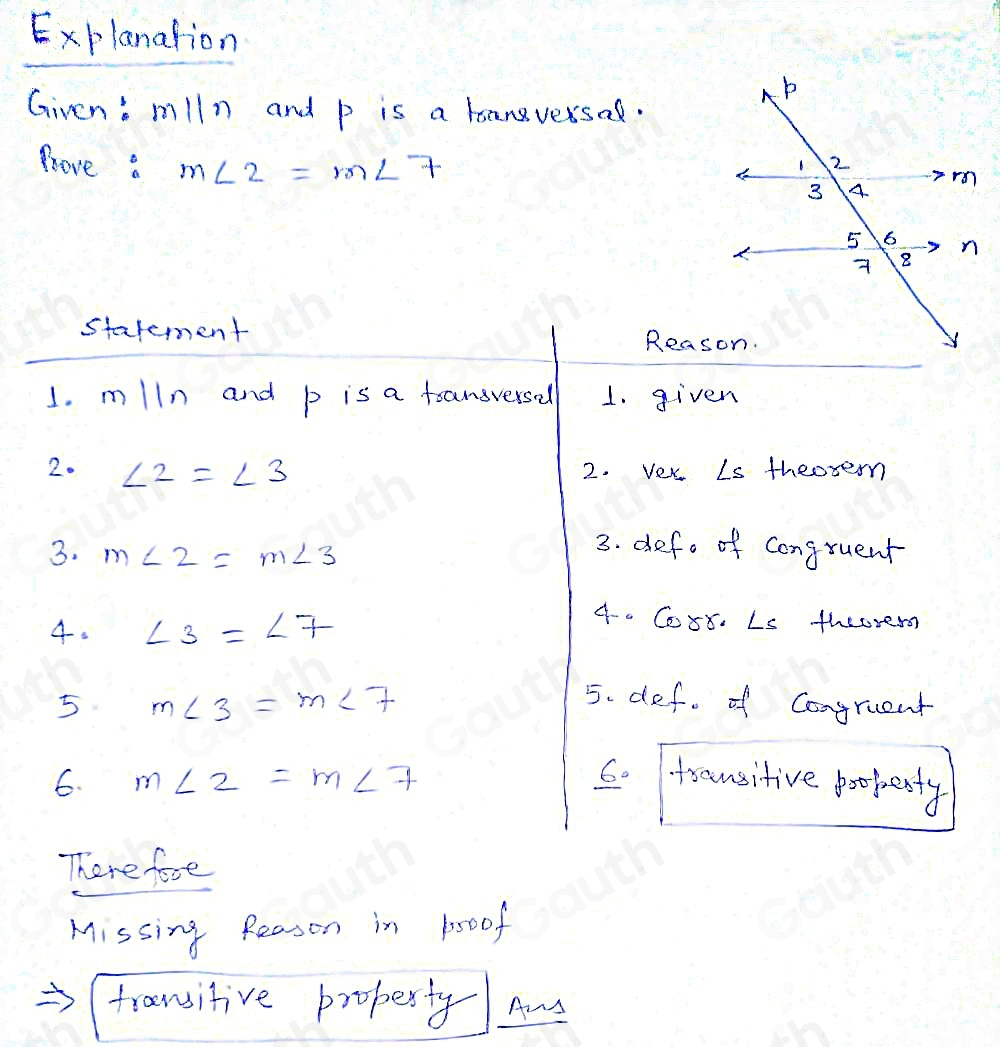 Explanation
Given : m||n and p is a transversal.
Prove : m∠2 = m∠7
p
1 2
m
3 4
5 6
n
7 8
Statement
Reason.
1. m||n and p is a transversal
1. given
2. ∠2 = ∠3
2. Ver. ∠s theorem
3. m∠2 = m∠3
3. def. of Congruent
4. ∠3 = ∠7
4. Corr. ∠s theorem
5. m∠3 = m∠7
5. def. of Congruent
6. m∠2 = m∠7
6. transitive property
Therefore
Missing Reason in proof
⇒ transitive property Ans